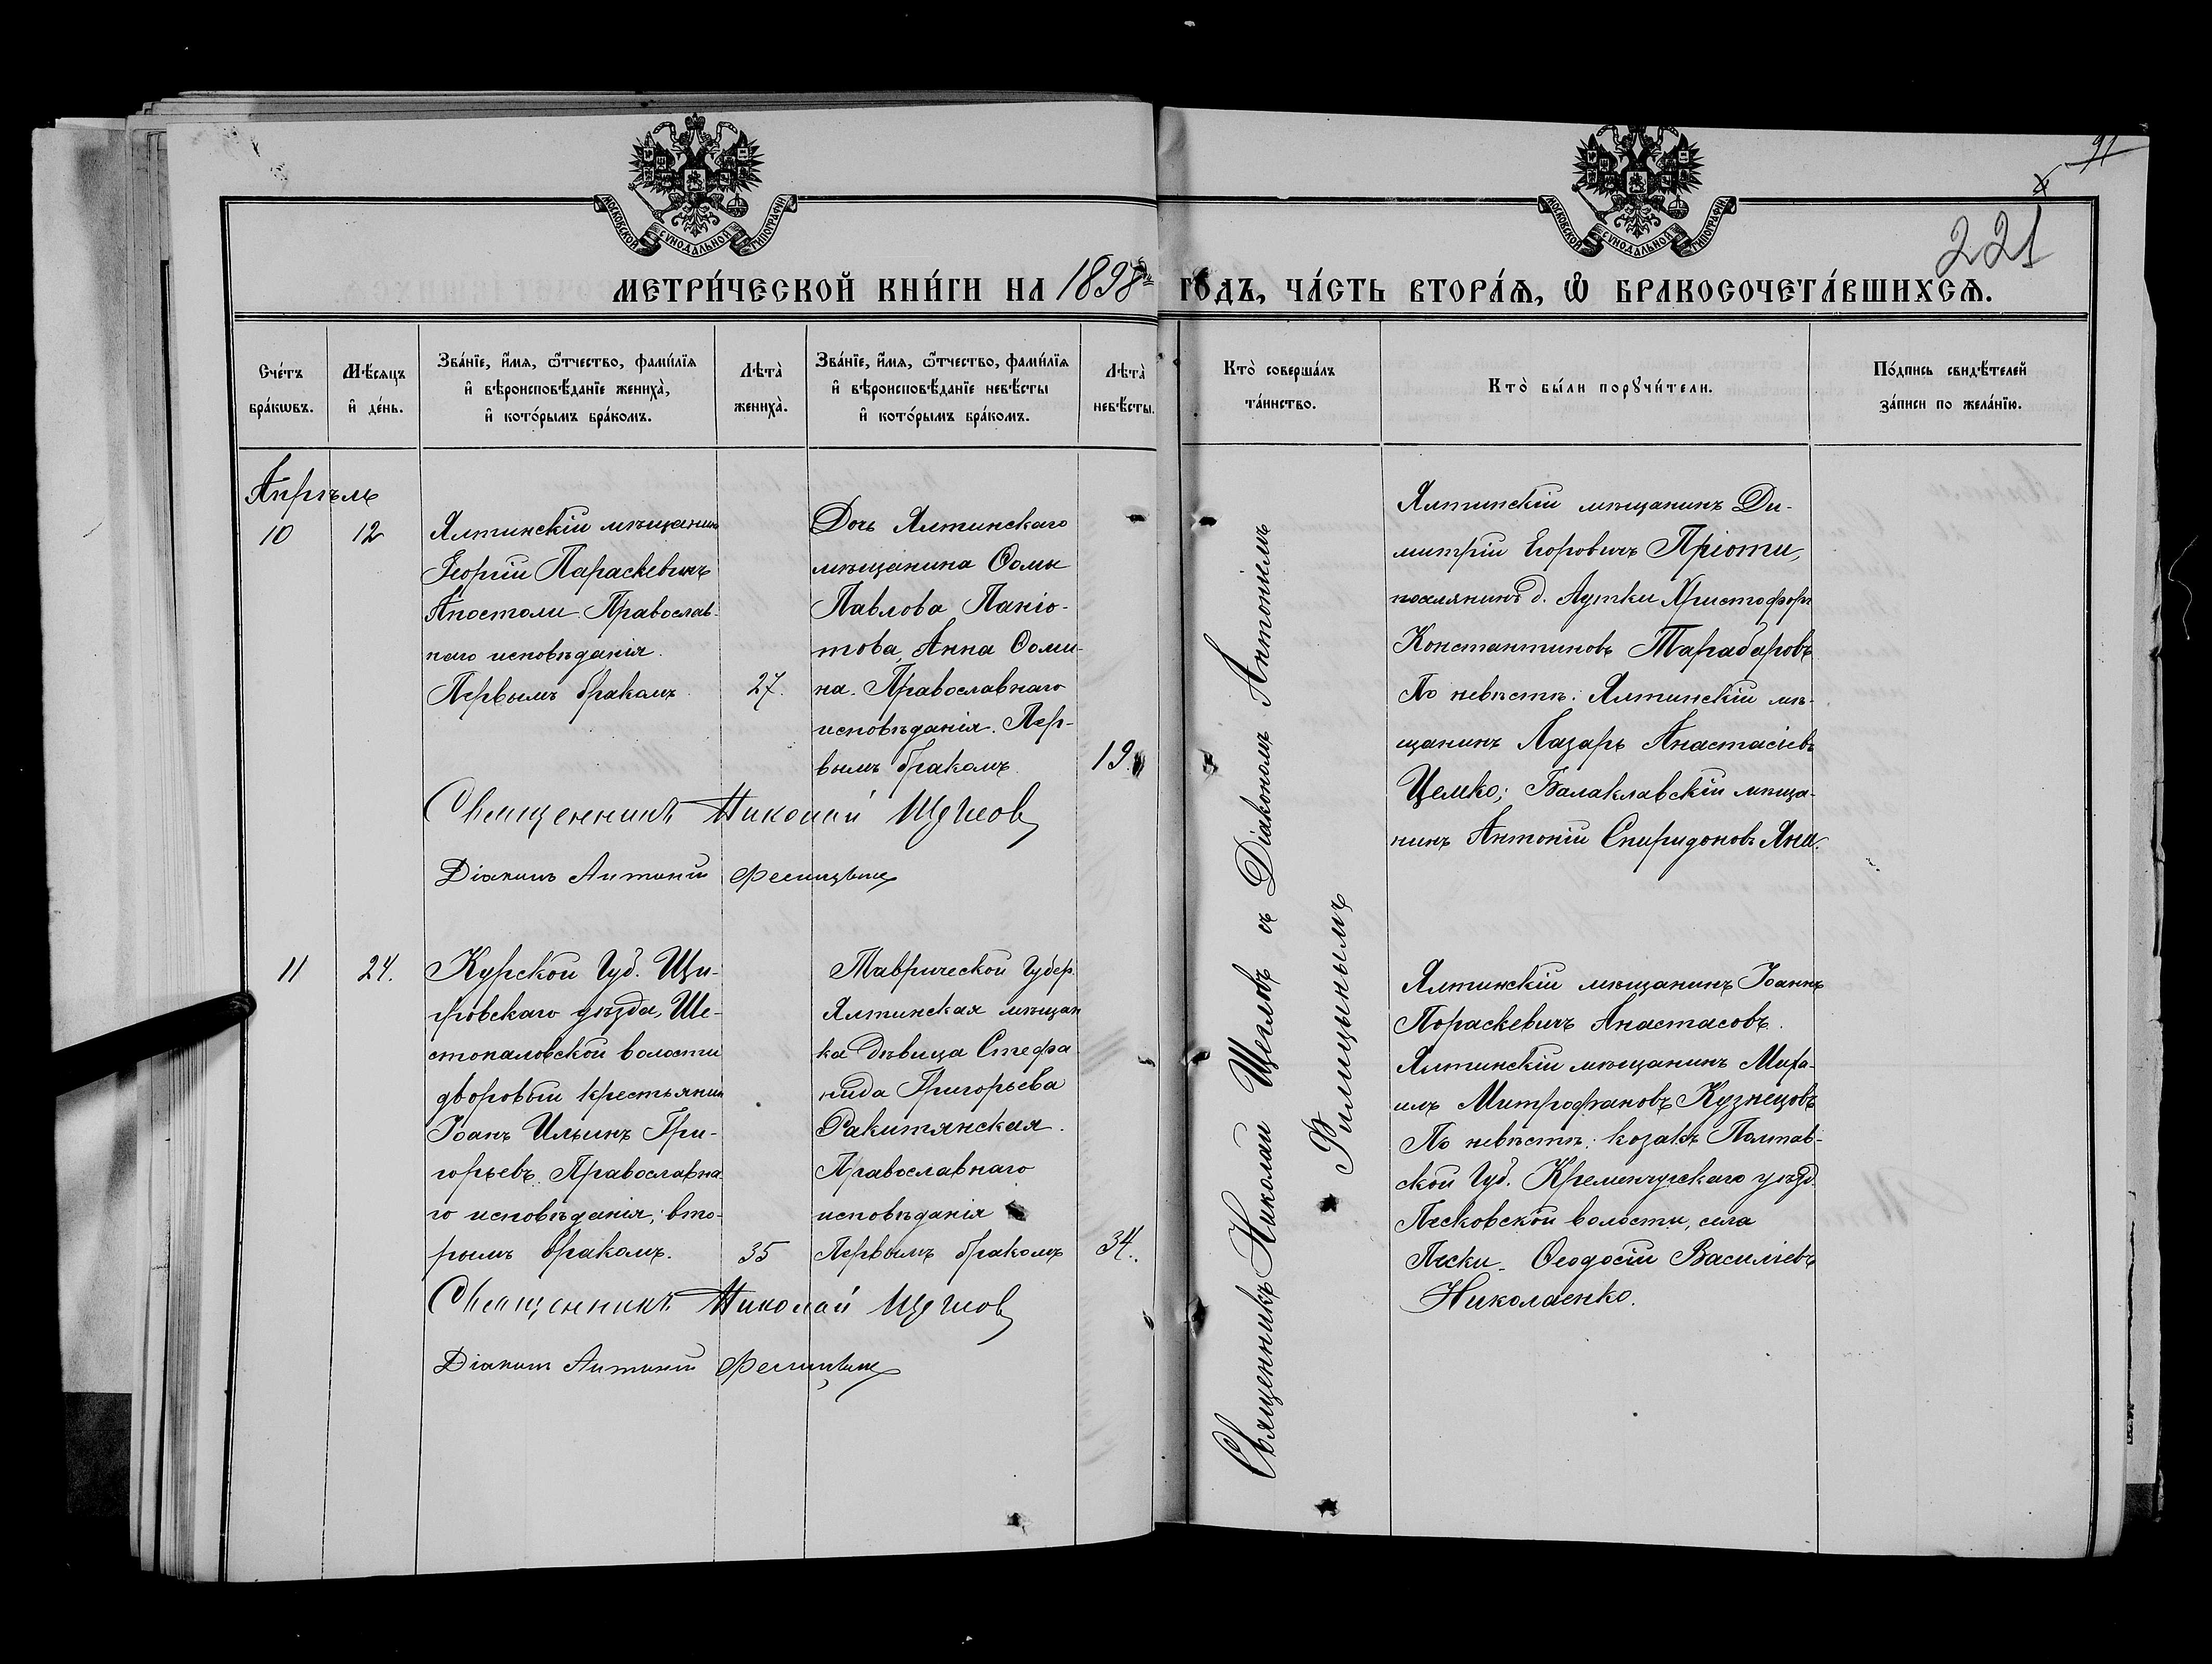 91
4
221
МОСКОВСКОЙ СУНОДАЛЬНОЙ ТИПОГРАФІИ
МОСКОВСКОЙ СУНОДАЛЬНОЙ ТИПОГРАФІИ
МЕТРИ́ЧЕСКОЙ КНИ́ГИ НА 1898 ГО́ДЪ, ЧА́СТЬ ВТОРА́Ѧ, Ѽ БРАКОСОЧЕТА́ВШИХСѦ.
Сче́тъ
бра́кѡвъ.
Мѣ́сяцъ
и҆ де́нь.
Зва́нїе, и҆́мѧ, ѻ҆́тчество, фами́лїѧ
и҆ вѣроисповѣ́данїе жениха̀,
и҆ кото́рымъ бра́комъ.
Лѣта̀
жениха̀.
Зва́нїе, и҆́мѧ, ѻ҆́тчество, фами́лїѧ
и҆ вѣроисповѣ́данїе невѣ́сты
и҆ кото́рымъ бра́комъ.
Лѣта̀
невѣ́сты.
Кто̀ соверша́лъ
та́инство.
Кто̀ бы́ли порꙋчи́тели.
По́дпись свидѣ́телей
за́писи по жела́нїю.
Апрѣль
10
12
Ялтинскій мѣщанинъ
Георгій Параскевичъ
Апостоли. Православ-
наго исповѣданія.
Первымъ бракомъ.
27.
Дочь Ялтинскаго
мѣщанина Ѳомы
Павлова Паніо-
това, Анна Ѳоми-
на. Православнаго
исповѣданія. Пер-
вымъ бракомъ.
19.
Священникъ Николай Щегловъ
Діаконъ Антоній
Священникъ Николай Щегловъ съ Діакономъ Антоніемъ
Филицынымъ
Ялтинскій мѣщанинъ Ди-
митрій Егоровичъ Пріоти,
поселянинъ д. Аутки Христофоръ
Константиновъ Тарабаровъ
По невѣстѣ: Ялтинскій мѣ-
щанинъ Лазарь Анастасіевъ
Цемко; Балаклавскій мѣща-
нинъ Антоній Спиридоновъ Яни.
11
24.
Курской Губ. Щи-
гровскаго уѣзда, Ше-
стопаловской волости
дворовый крестьянин
Іоанъ Ильинъ Гри-
горьевъ. Православна-
го исповѣданія; вто-
рымъ бракомъ.
35
Таврической Губер.
Ялтинская мѣщан
ка дѣвица Стефа
нида Григорьева
Ракитянская.
Православнаго
исповѣданія
Первымъ бракомъ
34.
Священникъ Николай Щегловъ
Діаконъ Антоній
Ялтинскій мѣщанинъ Іоаннъ
Пораскевичъ Анастасовъ.
Ялтинскій мѣщанинъ Миха-
илъ Митрофановъ Кузнецовъ
По невѣстѣ: козакъ Полтав-
ской Губ. Кременчугскаго уѣзд.
Песковской волости, села
Пески - Ѳеодосій Василіевъ
Николаенко.